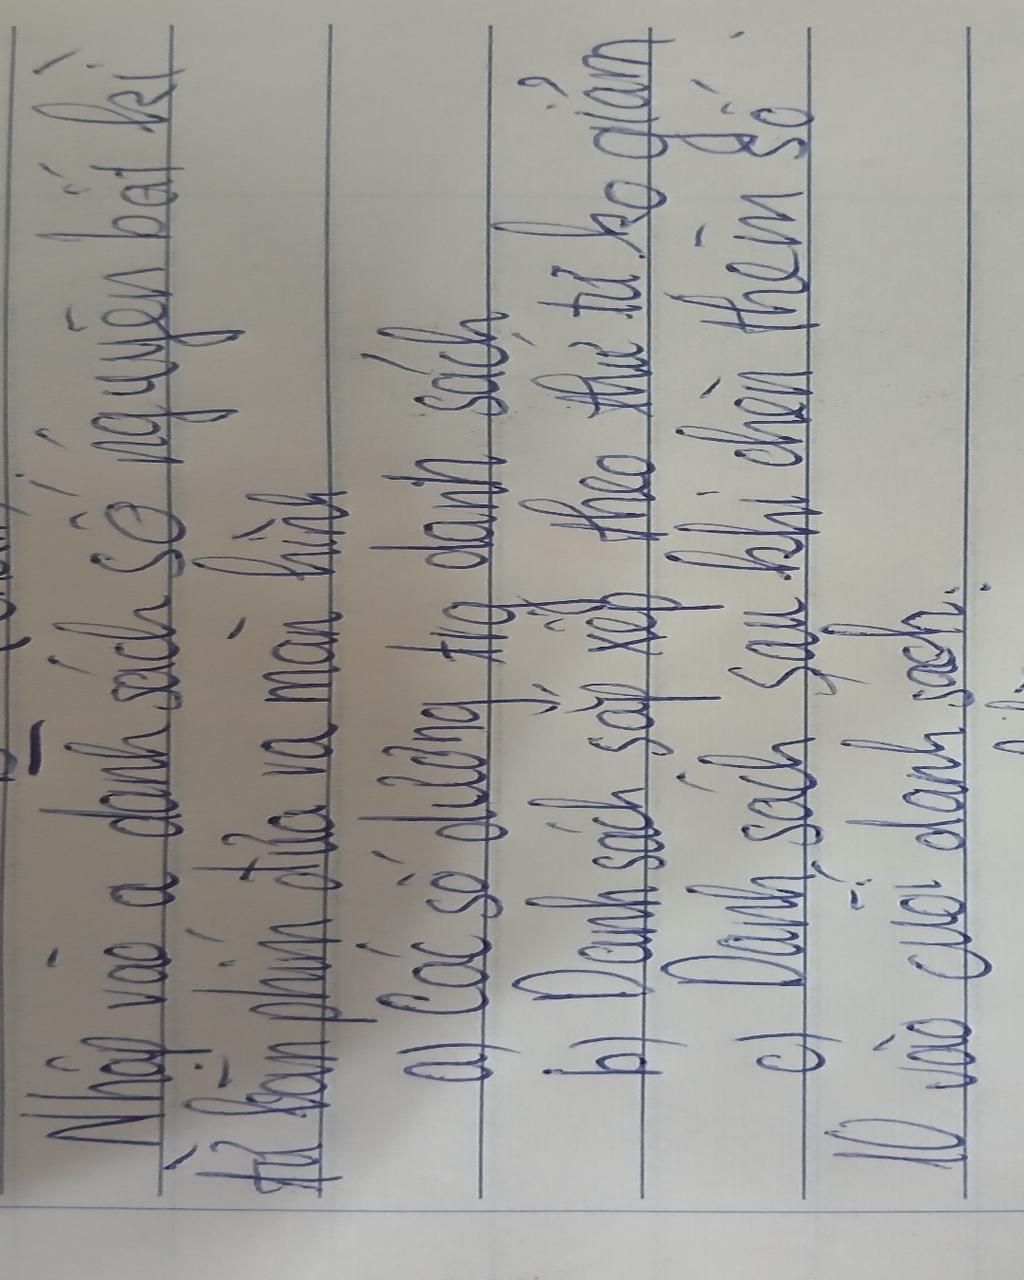 Nhập vào a danh sách số nguyên bất kì
từ bàn phím đưa ra màn hình
a) Các số dương trg danh sách
b) Danh sách sắp xếp theo thứ tự ko giảm
c) Danh sách sau khi chèn thêm số
10 vào cuối danh sách.